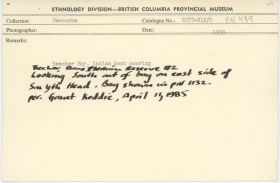 ETHNOLOGY DIVISION—BRITISH COLUMBIA PROVINCIAL MUSEUM
Collection: Newcombe Catalogue No.: PN 489
Photographer: Date: 1930
Remarks:
Beecher Bay. Indian boat mooring
Beecher Bay Indian Reserve #2
Looking South out of bay on east side of
Smyth Head. Bay shown in PN 1132.
per. Grant Keddie, April 11, 1985